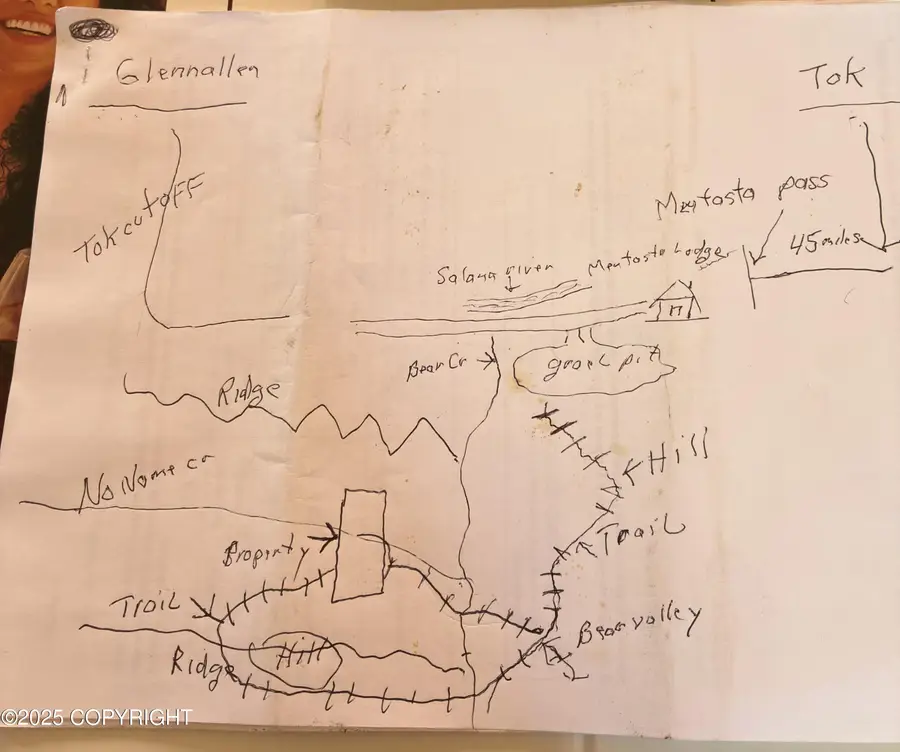 Glennallen
Tok
Tok cutoff
Mentasta pass
45 miles
Salana river
Mentasta Lodge
Bear Cr
gravel pit
Ridge
Hill
No Name cr
Property
Trail
Trail
Bear valley
Ridge
Hill
©2025 COPYRIGHT